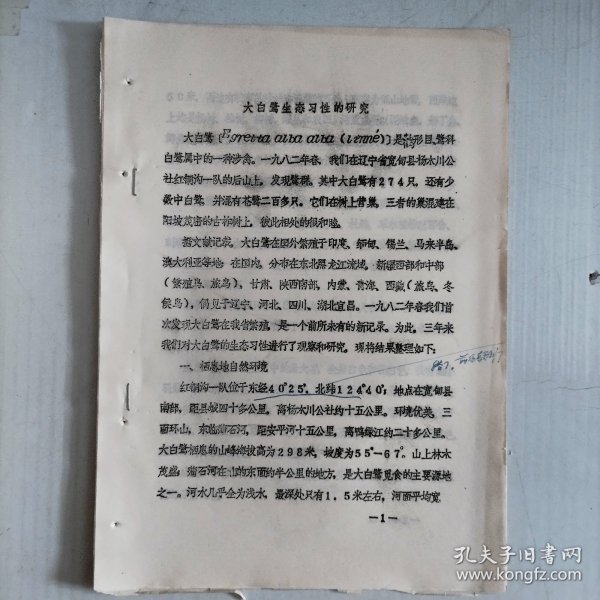 大白鹭生态习性的研究
大白鹭〔Egretta alba alba (Linné)〕是形目、鹭科
白鹭属中的一种涉禽。一九八二年春，我们在辽宁省宽甸县杨木川公
社红铜沟一队的后山上，发现鹭群。其中大白鹭有274只，还有少
数中白鹭，并混有苍鹭二百多只。它们在树上营巢，三者的巢混建在
阳坡茂密的古柞树上，彼此相处的很和睦。
据文献记载，大白鹭在国外繁殖于印度、缅甸、锡兰、马来半岛、
澳大利亚等地；在国内，分布在东北黑龙江流域，新疆西部和中部
（繁殖鸟、旅鸟），甘肃、陕西南部、内蒙、青海、西藏（旅鸟、冬
候鸟），偶见于辽宁、河北、四川、湖北宜昌。一九八二年春我们首
次发现大白鹭在我省繁殖，是一个前所未有的新记录。为此，三年来
我们对大白鹭的生态习性进行了观察和研究。现将结果整理如下：
一、栖息地自然环境
红铜沟一队位于东经40°25′，北纬124°40′；地点在宽甸县
南部，距县城四十多公里，离杨木川公社约十五公里。环境优美，三
面环山，东临蒲石河，距安平河十五公里，离鸭绿江约二十多公里。
大白鹭栖息的山峰海拔高为298米，坡度为55°—67°。山上林木
茂盛；蒲石河在山的东面约半公里的地方，是大白鹭觅食的主要源地
之一。河水几乎全为浅水，最深处只有1.5米左右，河面平均宽
—1—
孔夫子旧书网
www.kongfz.com